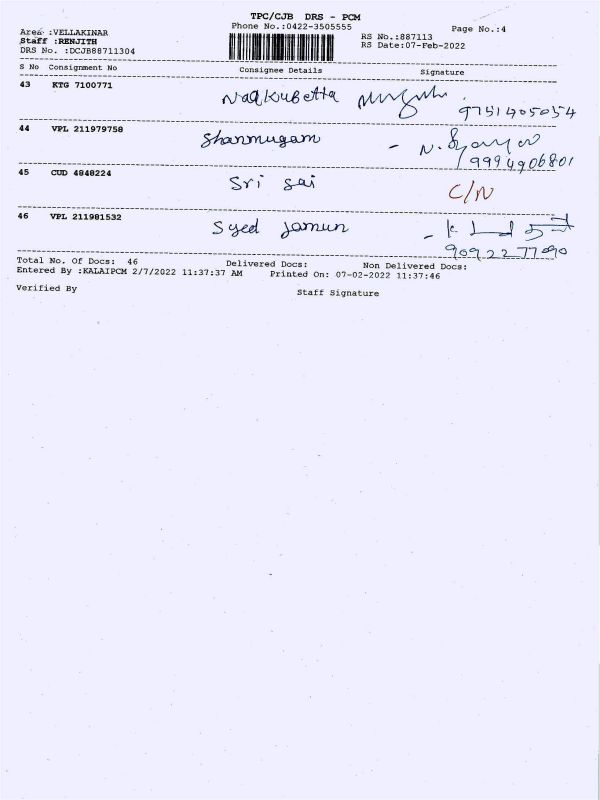 TPC/CJB DRS - PCM
Phone No.:0422-3505555
Page No.:4
Area :VELLAKINAR
Staff :RENJITH
DRS No. :DCJB88711304
RS No.:887113
RS Date:07-Feb-2022
S No Consignment No Consignee Details Signature
43 KTG 7100771 9751405054
44 VPL 211979758 Shanmugam -
9994906801
45 CUD 4848224 Sri Sai C/N
46 VPL 211981532 Syed Jamun -
9092277090
Total No. Of Docs: 46 Delivered Docs: Non Delivered Docs:
Entered By :KALAIPCM 2/7/2022 11:37:37 AM Printed On: 07-02-2022 11:37:46
Verified By Staff Signature